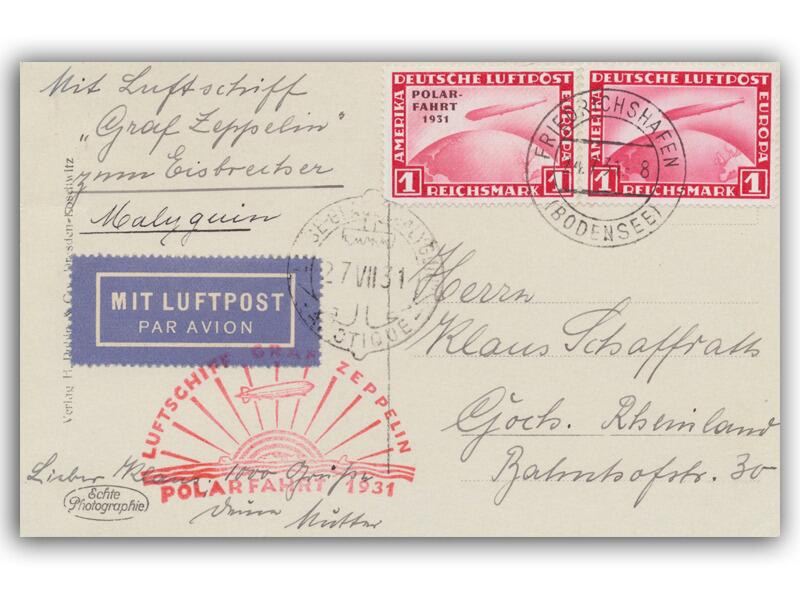 Mit Luftschiff
„Graf Zeppelin"
zum Eisbrecher
Malyguin
DEUTSCHE LUFTPOST
POLAR-
FAHRT
1931
AMERIKA
EUROPA
1 REICHSMARK 1
DEUTSCHE LUFTPOST
AMERIKA
EUROPA
1 REICHSMARK 1
FRIEDRICHSHAFEN
8
(BODENSEE)
27 VII 31
MIT LUFTPOST
PAR AVION
Herrn
Klaus Schaffrath
Goch. Rheinland
Bahnhofstr. 30
LUFTSCHIFF GRAF ZEPPELIN
POLARFAHRT 1931
Lieber Klaus. 1000 Grüße
Deine Mutter
Echte
Photographie
Verlag